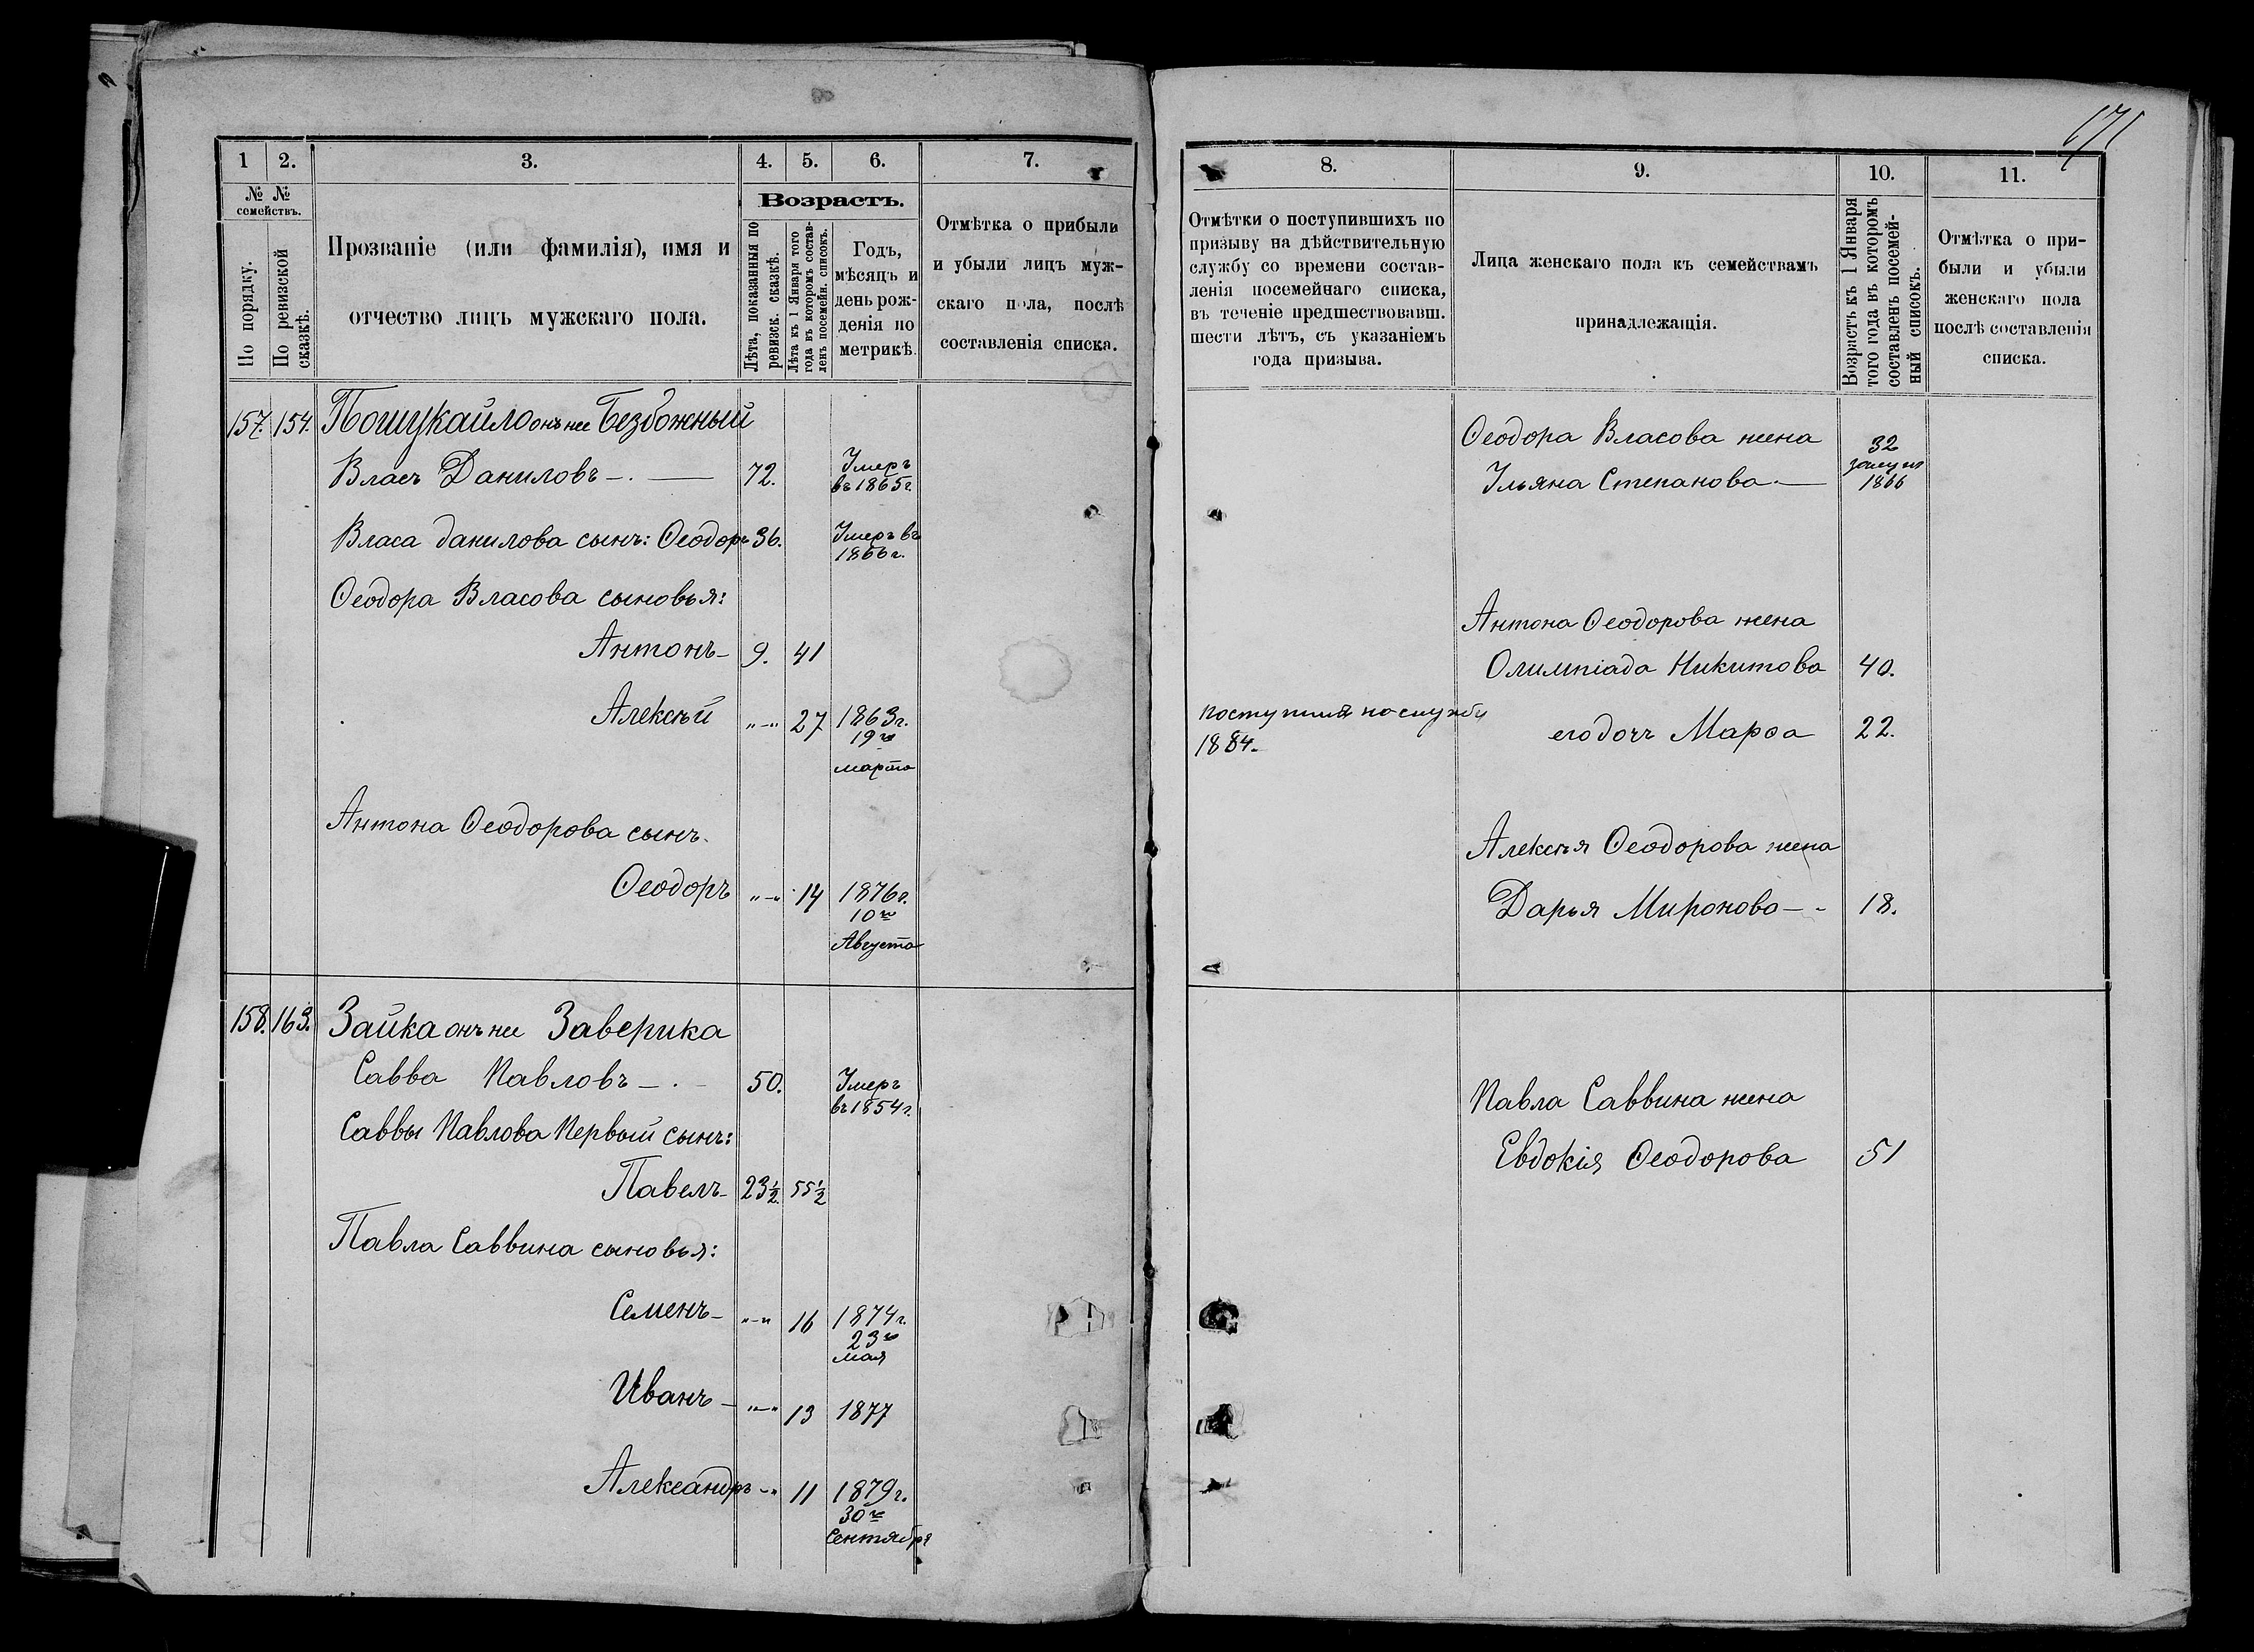 171
1 2. 3. 4. 5. 6. 7.
№ №
семействъ.
По порядку.
По ревизской
сказкѣ.
Прозваніе (или фамилія), имя и
отчество лицъ мужскаго пола.
Возрастъ.
Лѣта, показанныя по
ревизск. сказкѣ.
Лѣта къ 1 Января того
года въ которомъ состав-
ленъ посемейн. списокъ.
Годъ,
мѣсяцъ и
день рож-
денія по
метрикѣ.
Отмѣтка о прибыли
и убыли лицъ муж-
скаго пола, послѣ
составленія списка.
157. 154. Пошукайло онъ же Безбожный
Власъ Даниловъ 72. Умеръ
въ 1865 г.
Власа Данилова сынъ: Ѳеодоръ 36. Умеръ въ
1866 г.
Ѳеодора Власова сыновья:
Антонъ 9. 41
Алексѣй „—„ 27 1863 г.
19го
марта
Антона Ѳеодорова сынъ.
Ѳеодоръ „—„ 14 1876 г.
10го
Августа
158. 163. Зайка онъ же Заверика
Савва Павловъ 50. Умеръ
въ 1854 г.
Саввы Павлова Первый сынъ:
Павелъ 23½ 55½
Павла Саввина сыновья:
Семенъ „—„ 16 1874 г.
23го
мая
Иванъ „—„ 13 1877
Александръ —„ 11 1879 г.
30го
Сентября
8. 9. 10. 11.
Отмѣтки о поступившихъ по
призыву на дѣйствительную
службу со времени состав-
ленія посемейнаго списка,
въ теченіе предшествовавш.
шести лѣтъ, съ указаніемъ
года призыва.
Лица женскаго пола къ семействамъ
принадлежащія.
Возрастъ къ 1 Января
того года въ которомъ
составленъ посемей-
ный списокъ.
Отмѣтка о при-
были и убыли
женскаго пола
послѣ составленія
списка.
Ѳеодора Власова жена 32
Ульяна Степанова 1866
Антона Ѳеодорова жена
Олимпіада Никитова 40.
поступилъ на службу
1884.
его дочь Марѳа 22.
Алексѣя Ѳеодорова жена
Дарья Миронова 18.
Павла Саввина жена
Евдокія Ѳеодорова 51